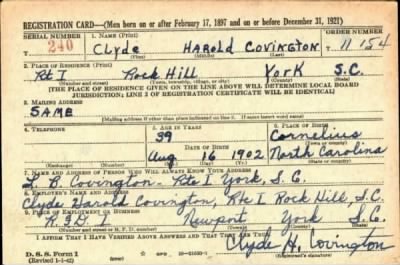 REGISTRATION CARD—(Men born on or after February 17, 1897 and on or before December 31, 1921)
SERIAL NUMBER 1. NAME (Print) ORDER NUMBER
240 Clyde Harold Covington T 11154
(First) (Middle) (Last)
2. PLACE OF RESIDENCE (Print)
Rt 1 Rock Hill York S.C.
(Number and street) (Town, township, village, or city) (County) (State)
[THE PLACE OF RESIDENCE GIVEN ON THE LINE ABOVE WILL DETERMINE LOCAL BOARD
JURISDICTION; LINE 2 OF REGISTRATION CERTIFICATE WILL BE IDENTICAL]
3. MAILING ADDRESS
SAME
(Mailing address if other than place indicated on line 2. If same insert word same)
4. TELEPHONE 5. AGE IN YEARS 6. PLACE OF BIRTH
39 Cornelius
DATE OF BIRTH (Town or county)
Aug 16 1902 North Carolina
(Exchange) (Number) (Mo.) (Day) (Yr.) (State or country)
7. NAME AND ADDRESS OF PERSON WHO WILL ALWAYS KNOW YOUR ADDRESS
L. B. Covington - Rte 1 York, S.C.
8. EMPLOYER'S NAME AND ADDRESS
Clyde Harold Covington, Rte 1 Rock Hill, S.C.
9. PLACE OF EMPLOYMENT OR BUSINESS
Newport York S.C.
(Number and street or R. F. D. number) (Town) (County) (State)
I AFFIRM THAT I HAVE VERIFIED ABOVE ANSWERS AND THAT THEY ARE TRUE.
D. S. S. Form 1
(Revised 1-1-42) (over) Clyde H. Covington